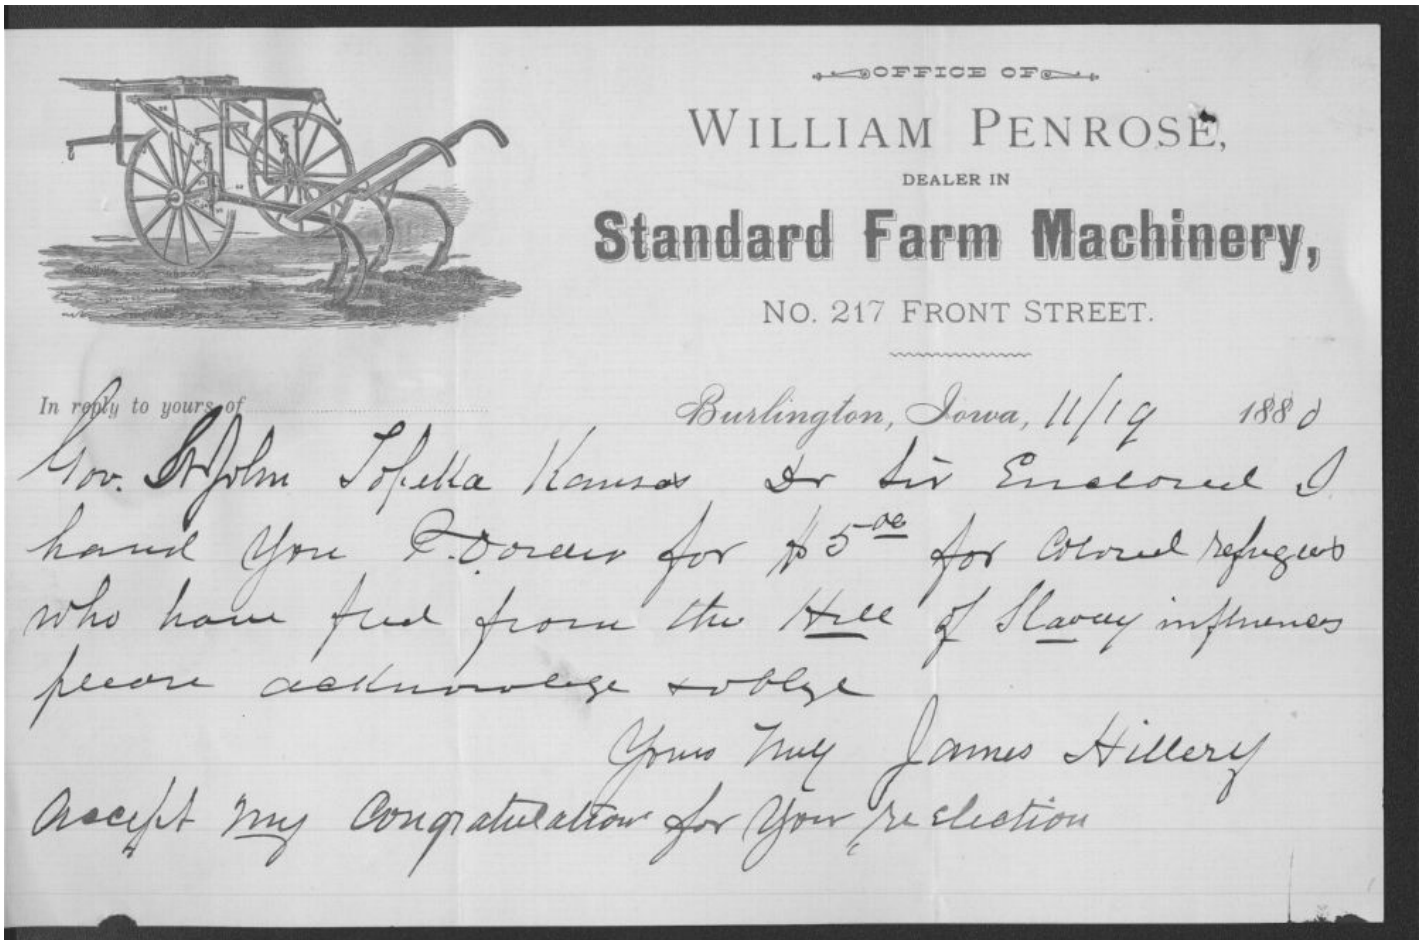 OFFICE OF
WILLIAM PENROSE,
DEALER IN
Standard Farm Machinery,
No. 217 FRONT STREET.
In reply to yours of
Burlington, Iowa, 11/19 1880
Gov. St John Topeka Kansas Dr Sir Enclosed I
hand you P.O order for $5 00 for Colored refugees
who have fled from the Hell of Slavery influences
please acknowledge & oblige
Yours truly James Hillery
accept my Congratulation for your reelection